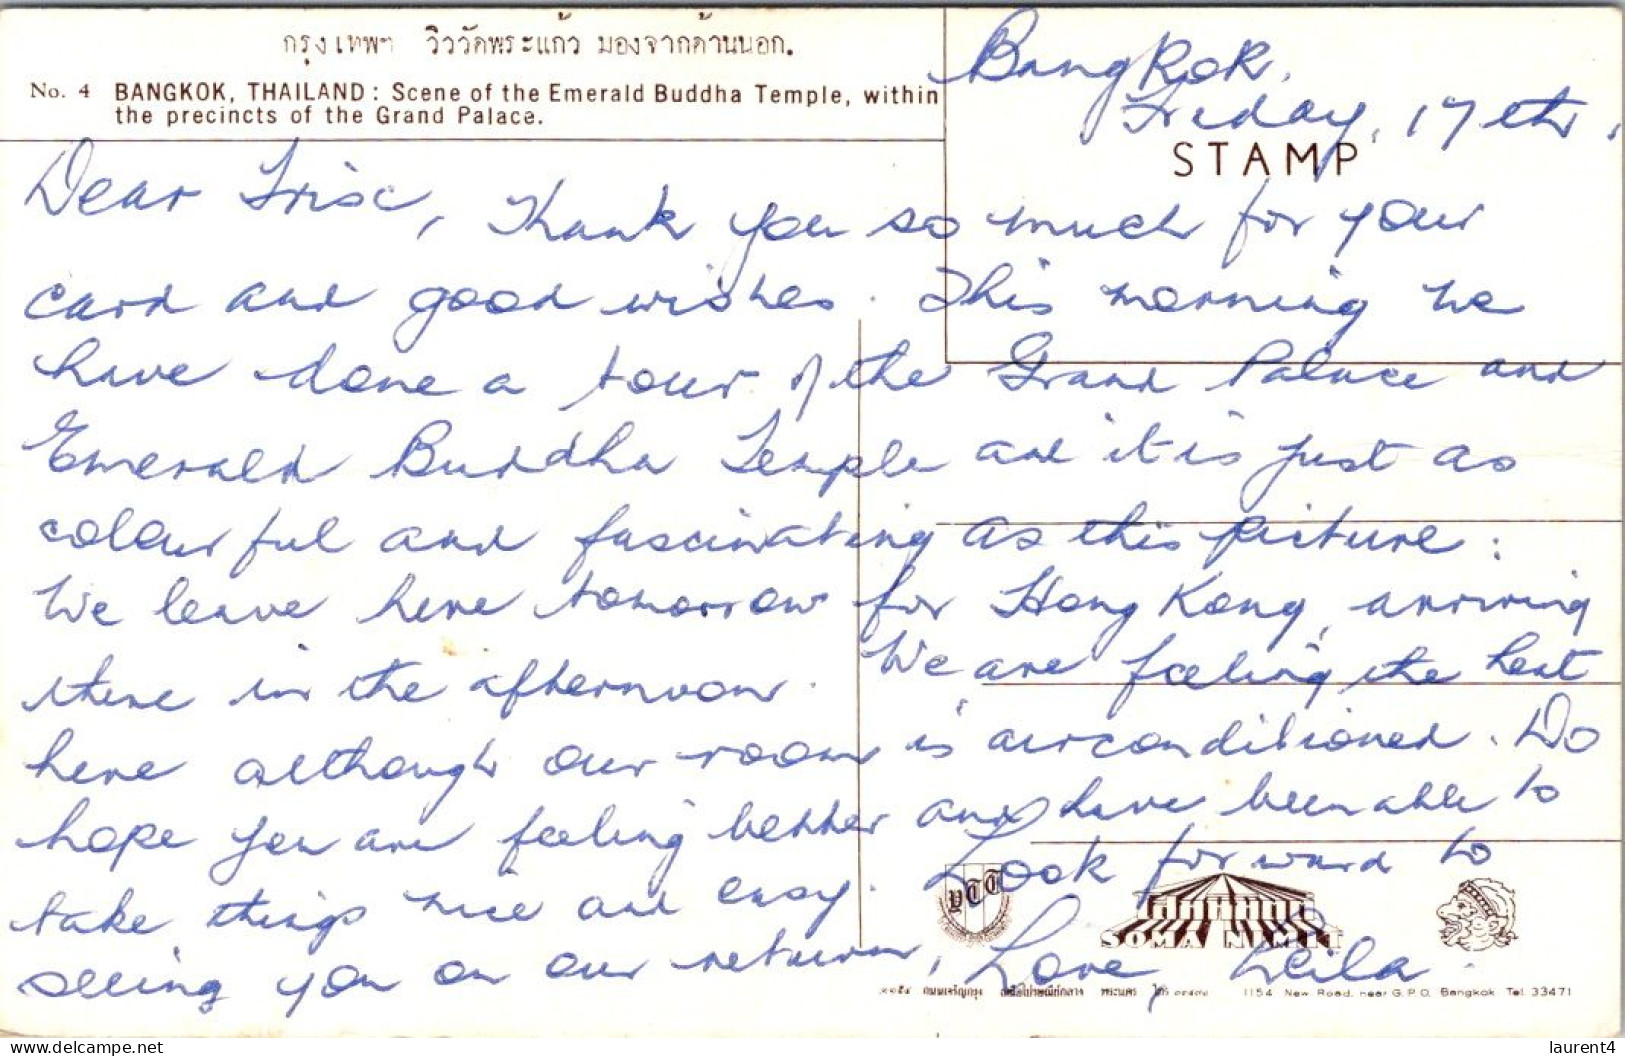 กรุงเทพฯ วิววัดพระแก้ว มองจากด้านนอก.
No. 4 BANGKOK, THAILAND : Scene of the Emerald Buddha Temple, within
the precincts of the Grand Palace.
Bangkok,
Friday, 17th,
STAMP
Dear Trisc, Thank you so much for your
card and good wishes. This morning we
have done a tour of the Grand Palace and
Emerald Buddha Temple and it is just as
colourful and fascinating as this picture:
We leave here tomorrow for Hong Kong, arriving
there in the afternoon. We are feeling the heat
here although our room is airconditioned. Do
hope you are feeling better and have been able to
take things nice and easy. Look forward to
seeing you on our return, Love, Leila.
YTT
SOMA NIMIT
ถนนเจริญกรุง พระนคร
1154 New Road, near G.P.O. Bangkok Tel. 33471
https://www.delcampe.net
laurent4